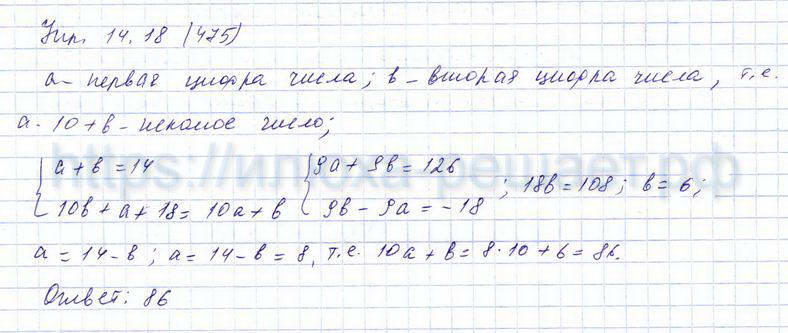 Упр. 14.18 (475)
a – первая цифра числа; b – вторая цифра числа, т.е.
a · 10 + b – искомое число;
{ a + b = 14 { 9a + 9b = 126
10b + a + 18 = 10a + b 9b – 9a = –18 ; 18b = 108; b = 6;
a = 14 – b ; a = 14 – b = 8, т.е. 10a + b = 8 · 10 + 6 = 86.
Ответ: 86
https://ипоха-решает.рф